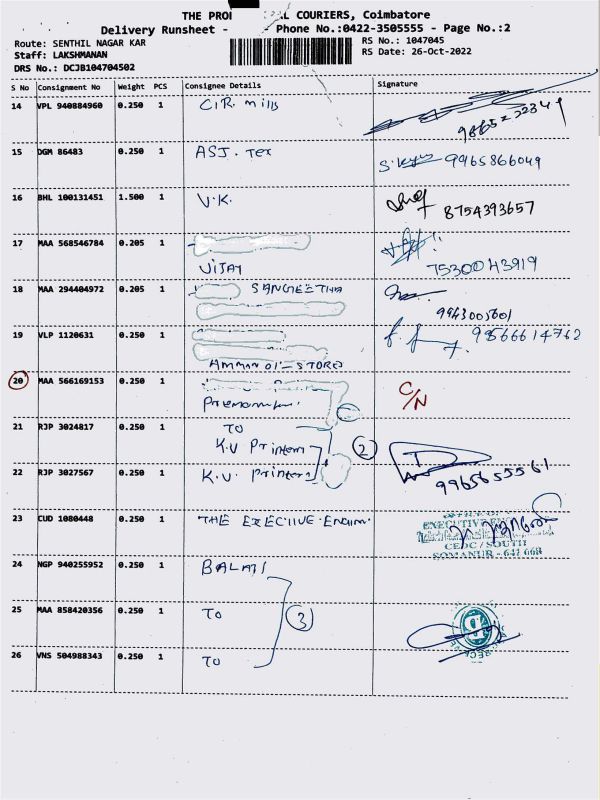 THE PRO COURIERS, Coimbatore
Delivery Runsheet - Phone No.:0422-3505555 - Page No.:2
Route: SENTHIL NAGAR KAR RS No.: 1047045
Staff: LAKSHMANAN RS Date: 26-Oct-2022
DRS No.: DCJB104704502
S No Consignment No Weight PCS Consignee Details Signature
14 VPL 940884960 0.250 1 CIR. mills
15 DGM 86483 0.250 1 ASJ. Tex 9965866049
16 BHL 100131451 1.500 1 V.K. 8754393657
17 MAA 568546784 0.205 1
VIJAY 7530043919
18 MAA 294404972 0.205 1 SANGEETHA
9943005601
19 VLP 1120631 0.250 1 9566614762
AMMAN OI - STORES
20 MAA 566169153 0.250 1 C/N
21 RJP 3024817 0.250 1 TO
K.V Printers 2
22 RJP 3027567 0.250 1 K.V. Printers 9965655561
23 CUD 1080448 0.250 1 THE EXECIIVE
EXECUTIVE
CEDC/SOUTH
SOMANUR - 641 668
24 NGP 940255952 0.250 1 BALAJI
25 MAA 858420356 0.250 1 TO 3
26 VNS 504988343 0.250 1 TO